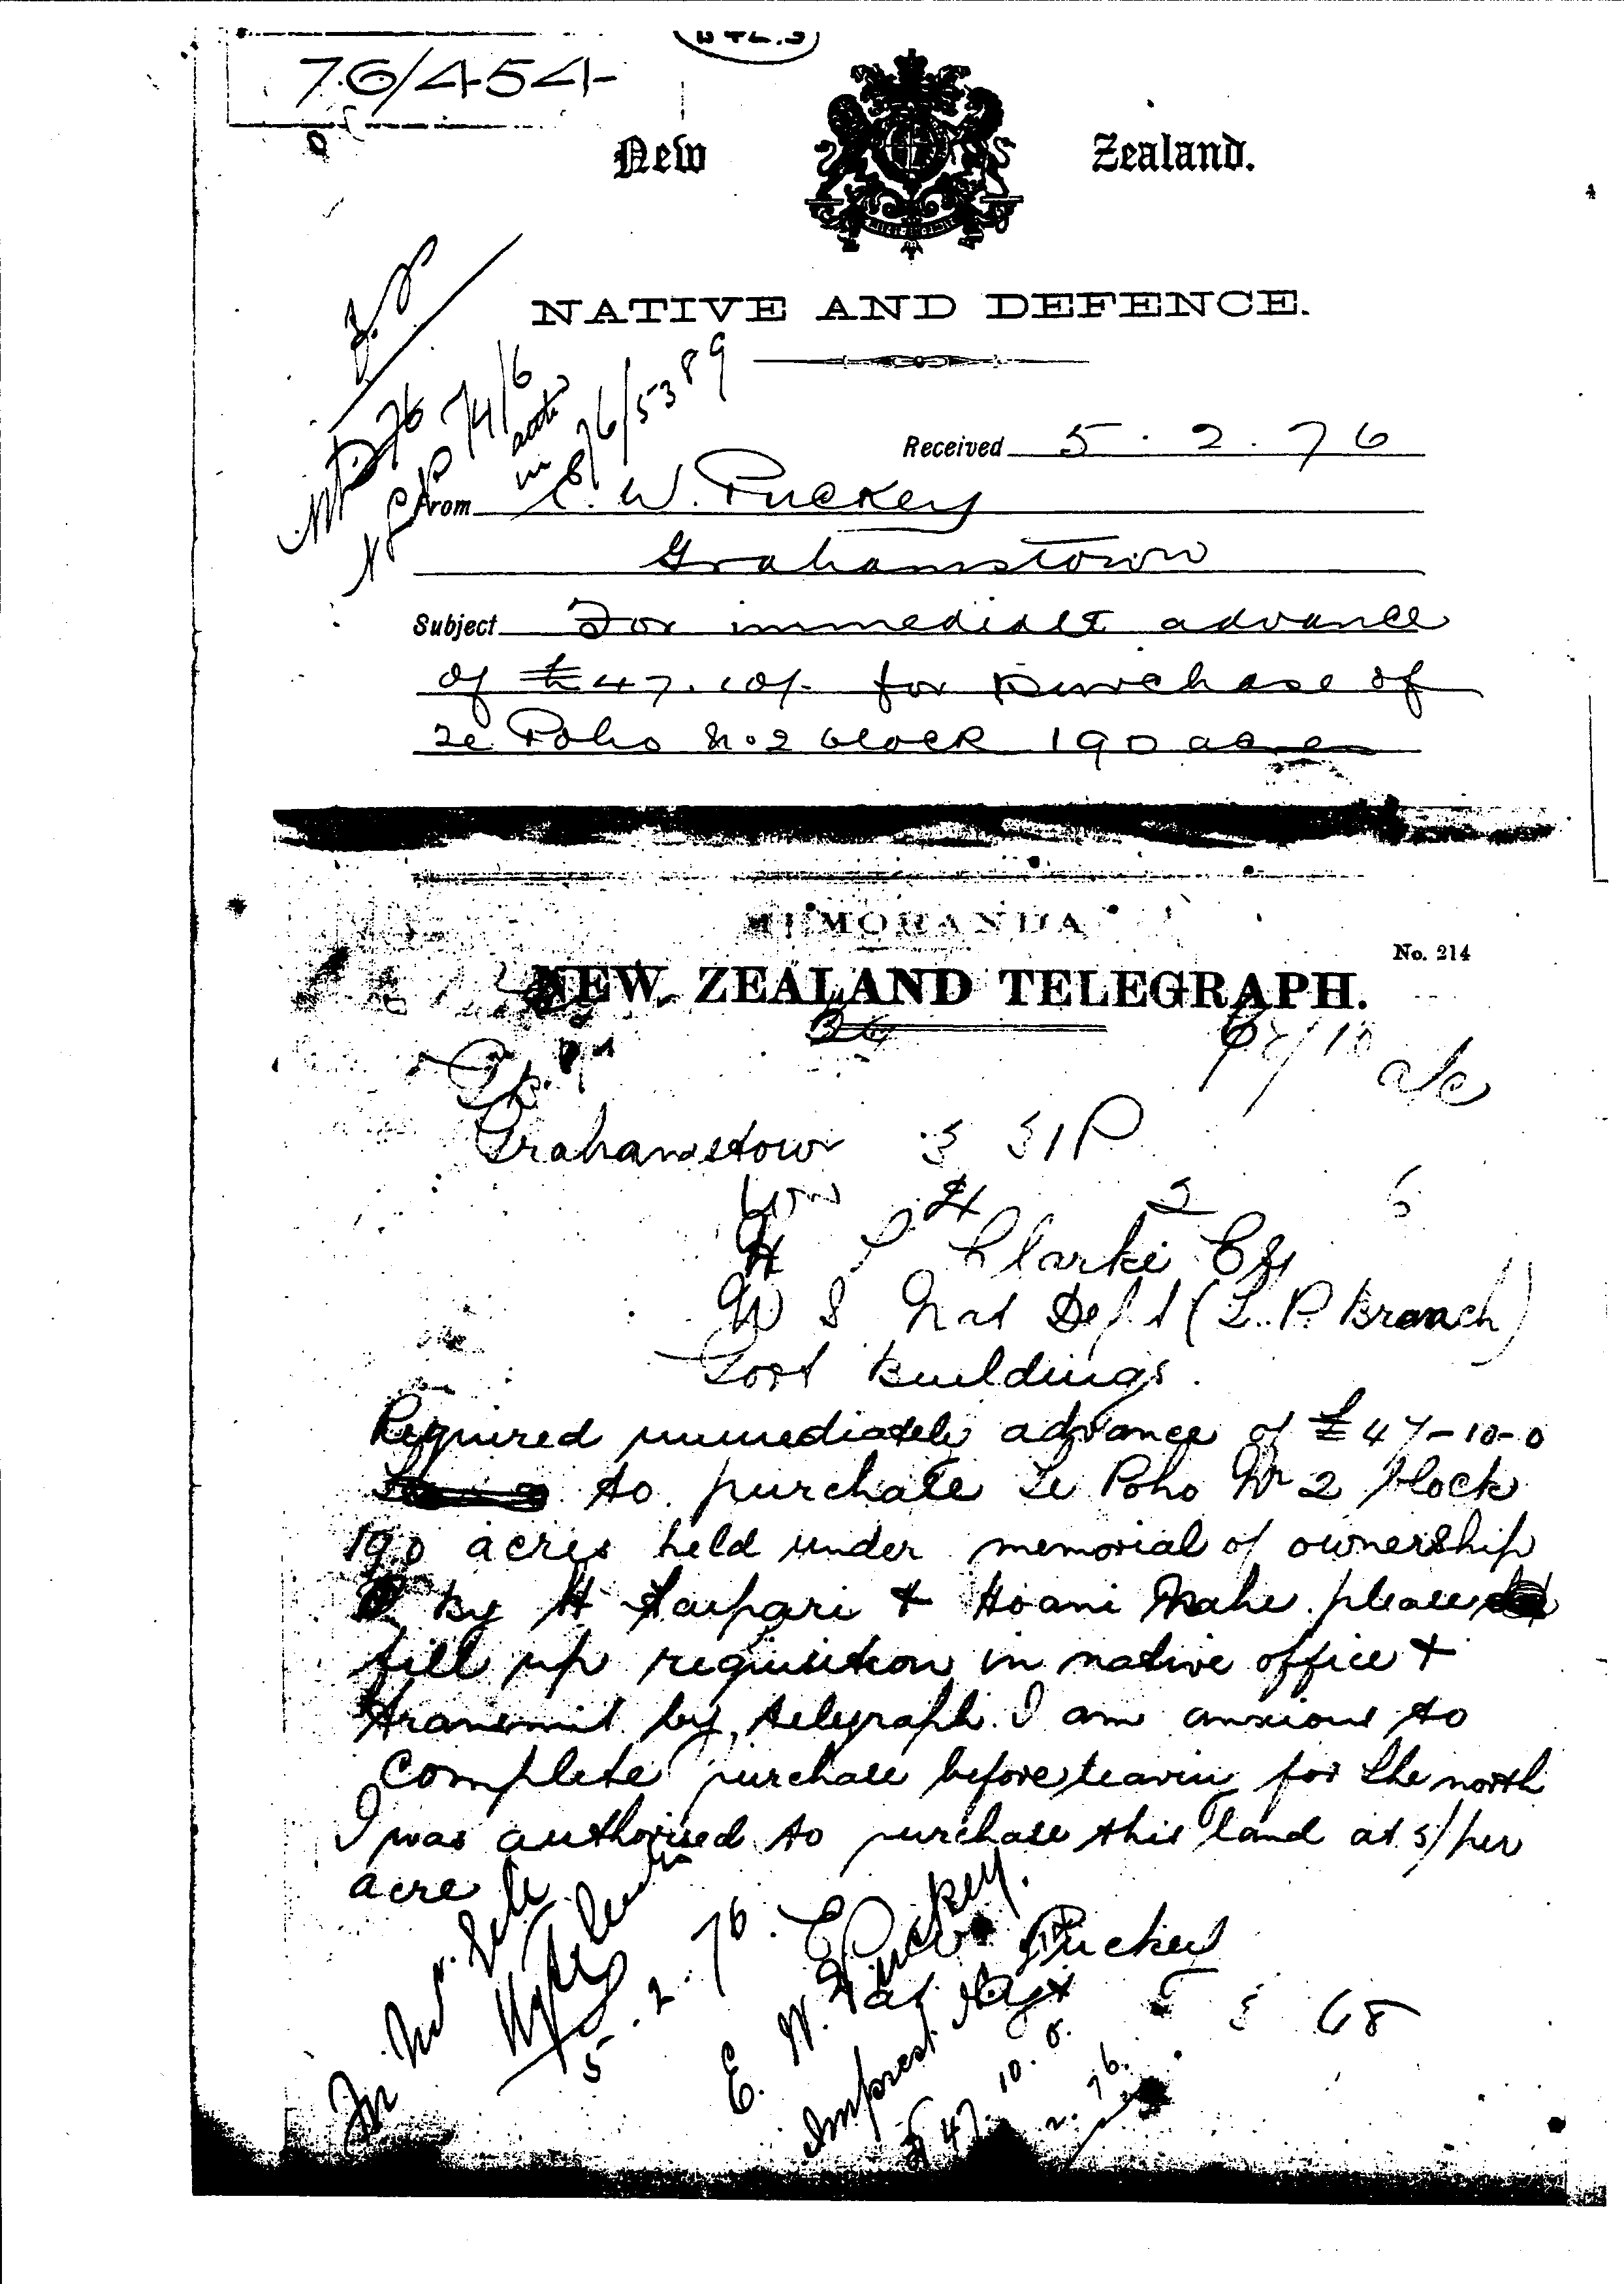 76/454
New Zealand.
NATIVE AND DEFENCE.
76/5389
Received 5.2.76
From E. W. Puckey
Grahamstown
Subject For immediate advance
of £47.10/- for purchase of
Te Poho No 2 block 190 acres
MEMORANDA
No. 214
NEW ZEALAND TELEGRAPH.
Grahamstown 3 31P
4 2 6
H T Clarke Esq
U S Nat Dept (L.P. Branch)
Govt Buildings.
Required immediately advance of £47-10-0
to purchase Te Poho Nr 2 block
190 acres held under memorial of ownership
By H Taipari & Hoani Mahe please
fill up requisition in native office &
transmit by telegraph. I am anxious to
complete purchase before leaving for the north
I was authorised to purchase this land at 5/ per
acre
E W Puckey
Nat Agt
68
5.2.76.
E. W. Puckey.
Imprest
£47.10.0.
2.76.